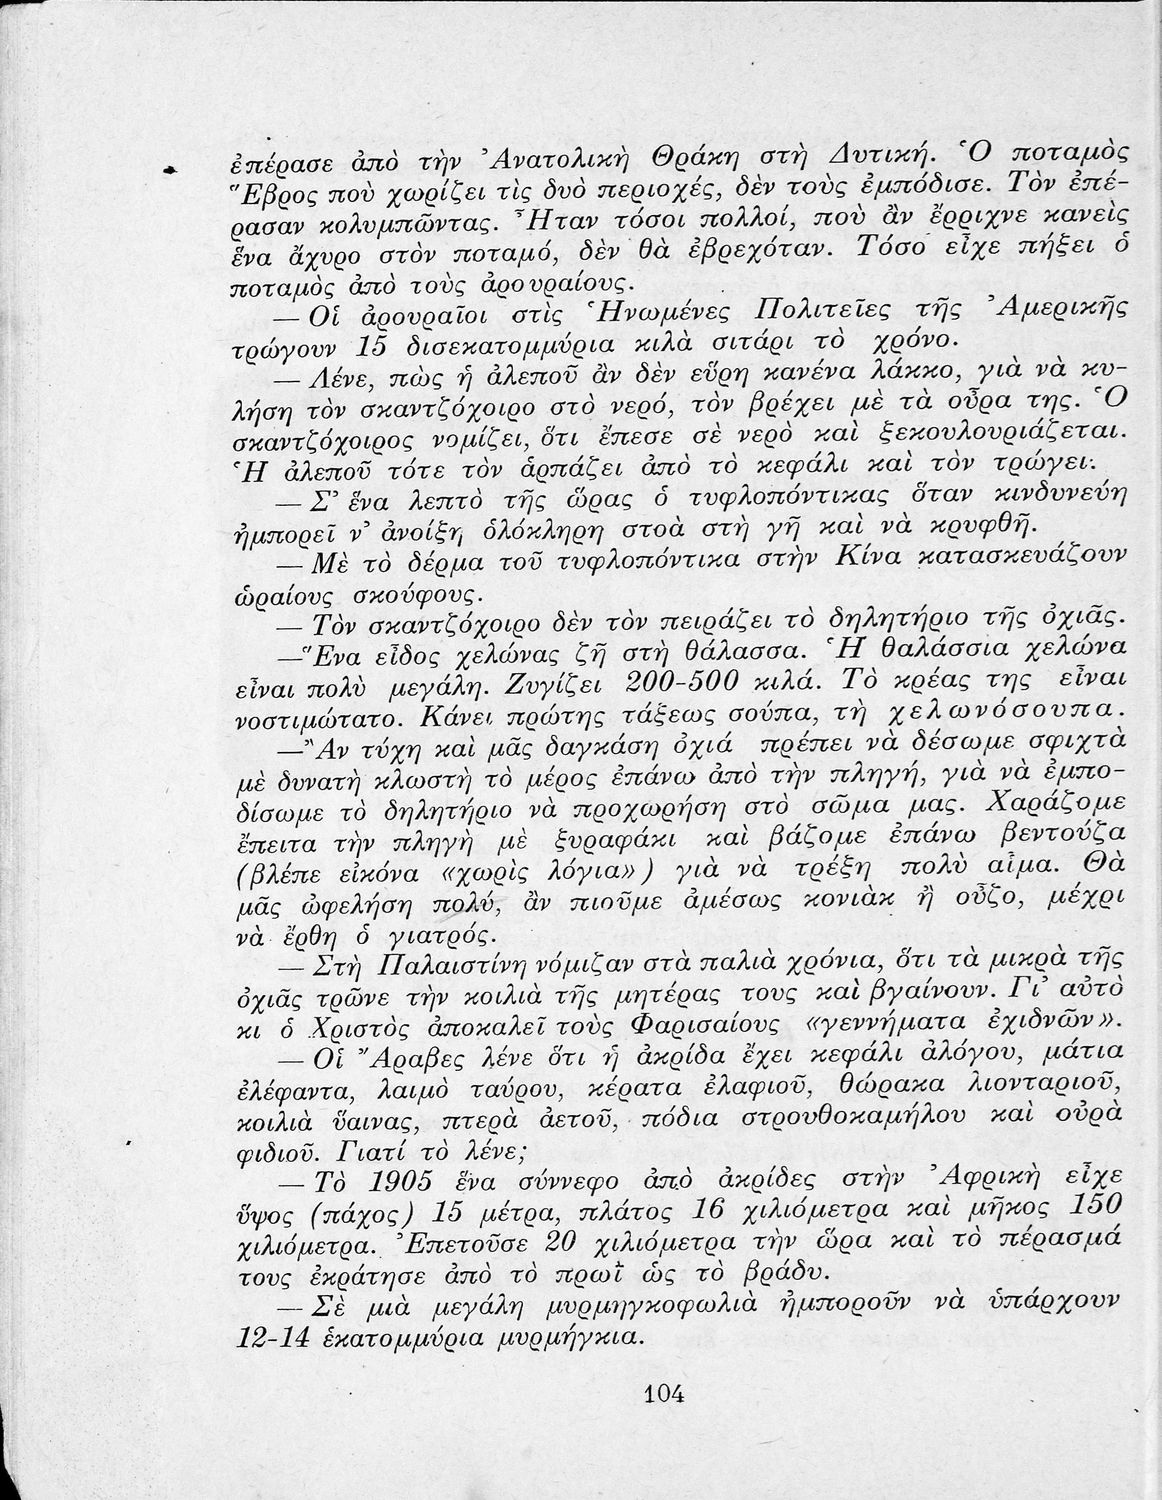 ἐπέρασε ἀπὸ τὴν Ἀνατολικὴ Θράκη στὴ Δυτική. Ὁ ποταμὸς
Ἕβρος ποὺ χωρίζει τὶς δυὸ περιοχές, δὲν τοὺς ἐμπόδισε. Τὸν ἐπέ-
ρασαν κολυμπῶντας. Ἦταν τόσοι πολλοί, ποὺ ἂν ἔρριχνε κανεὶς
ἕνα ἄχυρο στὸν ποταμό, δὲν θὰ ἐβρεχόταν. Τόσο εἶχε πήξει ὁ
ποταμὸς ἀπὸ τοὺς ἀρουραίους.
— Οἱ ἀρουραῖοι στὶς Ἡνωμένες Πολιτεῖες τῆς Ἀμερικῆς
τρώγουν 15 δισεκατομμύρια κιλὰ σιτάρι τὸ χρόνο.
— Λένε, πὼς ἡ ἀλεποῦ ἂν δὲν εὕρη κανένα λάκκο, γιὰ νὰ κυ-
λήση τὸν σκαντζόχοιρο στὸ νερό, τὸν βρέχει μὲ τὰ οὖρα της. Ὁ
σκαντζόχοιρος νομίζει, ὅτι ἔπεσε σὲ νερὸ καὶ ξεκουλουριάζεται.
Ἡ ἀλεποῦ τότε τὸν ἁρπάζει ἀπὸ τὸ κεφάλι καὶ τὸν τρώγει.
— Σ' ἕνα λεπτὸ τῆς ὥρας ὁ τυφλοπόντικας ὅταν κινδυνεύη
ἠμπορεῖ ν' ἀνοίξη ὁλόκληρη στοὰ στὴ γῆ καὶ νὰ κρυφθῆ.
— Μὲ τὸ δέρμα τοῦ τυφλοπόντικα στὴν Κίνα κατασκευάζουν
ὡραίους σκούφους.
— Τὸν σκαντζόχοιρο δὲν τὸν πειράζει τὸ δηλητήριο τῆς ὀχιᾶς.
—Ἕνα εἶδος χελώνας ζῆ στὴ θάλασσα. Ἡ θαλάσσια χελώνα
εἶναι πολὺ μεγάλη. Ζυγίζει 200-500 κιλά. Τὸ κρέας της εἶναι
νοστιμώτατο. Κάνει πρώτης τάξεως σούπα, τὴ χελωνόσουπα.
—Ἂν τύχη καὶ μᾶς δαγκάση ὀχιά πρέπει νὰ δέσωμε σφιχτὰ
μὲ δυνατὴ κλωστὴ τὸ μέρος ἐπάνω ἀπὸ τὴν πληγή, γιὰ νὰ ἐμπο-
δίσωμε τὸ δηλητήριο νὰ προχωρήση στὸ σῶμα μας. Χαράζομε
ἔπειτα τὴν πληγὴ μὲ ξυραφάκι καὶ βάζομε ἐπάνω βεντούζα
(βλέπε εἰκόνα «χωρὶς λόγια») γιὰ νὰ τρέξη πολὺ αἷμα. Θὰ
μᾶς ὠφελήση πολύ, ἂν πιοῦμε ἀμέσως κονιὰκ ἢ οὖζο, μέχρι
νὰ ἔρθη ὁ γιατρός.
— Στὴ Παλαιστίνη νόμιζαν στὰ παλιὰ χρόνια, ὅτι τὰ μικρὰ τῆς
ὀχιᾶς τρῶνε τὴν κοιλιὰ τῆς μητέρας τους καὶ βγαίνουν. Γι' αὐτὸ
κι ὁ Χριστὸς ἀποκαλεῖ τοὺς Φαρισαίους «γεννήματα ἐχιδνῶν».
— Οἱ Ἄραβες λένε ὅτι ἡ ἀκρίδα ἔχει κεφάλι ἀλόγου, μάτια
ἐλέφαντα, λαιμὸ ταύρου, κέρατα ἐλαφιοῦ, θώρακα λιονταριοῦ,
κοιλιὰ ὕαινας, πτερὰ ἀετοῦ, πόδια στρουθοκαμήλου καὶ οὐρὰ
φιδιοῦ. Γιατί τὸ λένε;
— Τὸ 1905 ἕνα σύννεφο ἀπὸ ἀκρίδες στὴν Ἀφρικὴ εἶχε
ὕψος (πάχος) 15 μέτρα, πλάτος 16 χιλιόμετρα καὶ μῆκος 150
χιλιόμετρα. Ἐπετοῦσε 20 χιλιόμετρα τὴν ὥρα καὶ τὸ πέρασμά
τους ἐκράτησε ἀπὸ τὸ πρωῒ ὡς τὸ βράδυ.
— Σὲ μιὰ μεγάλη μυρμηγκοφωλιὰ ἠμποροῦν νὰ ὑπάρχουν
12-14 ἑκατομμύρια μυρμήγκια.
104